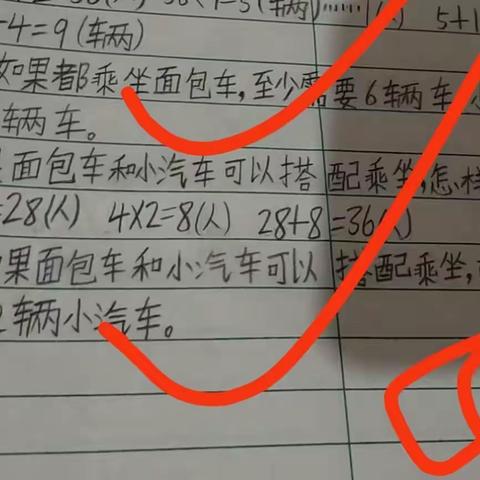 36÷7=5(辆)……1(人) 5+1
-4=9(车两)
如果都乘坐面包车,至少需要6车两车
车两车。
面包车和小汽车可以搭配乘坐,怎样
=28(人) 4×2=8(人) 28+8=36(人)
果面包车和小汽车可以搭配乘坐,
2车两小汽车。